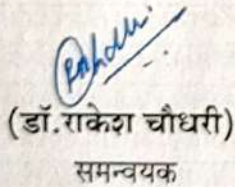 (डॉ.राकेश चौधरी)
समन्वयक